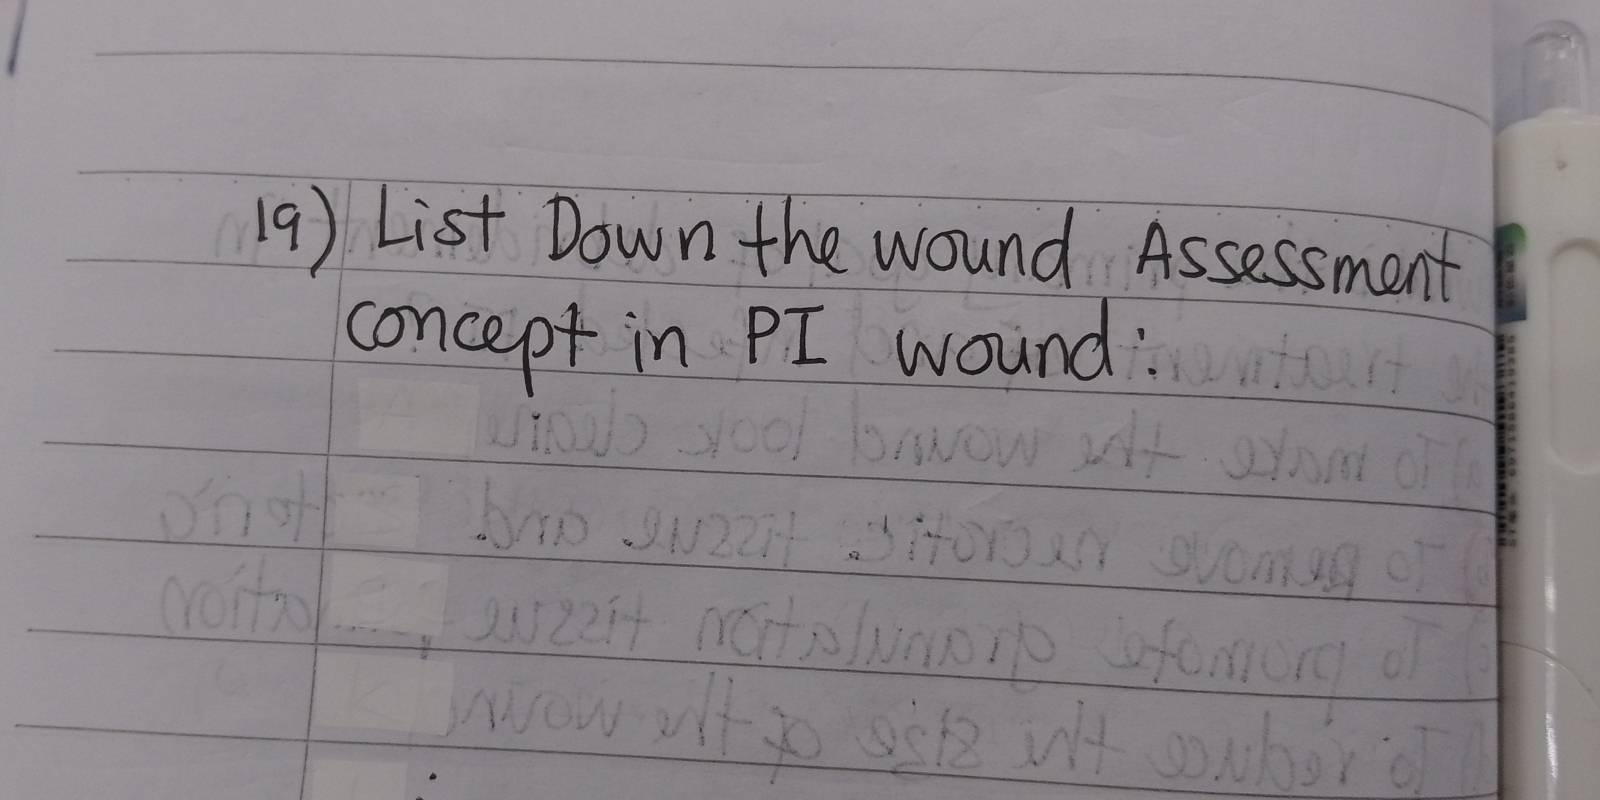 19) List Down the wound Assessment
concept in PI wound: